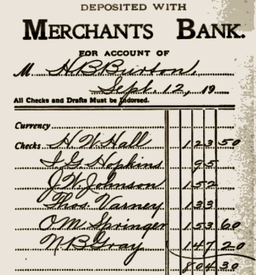 DEPOSITED WITH
MERCHANTS BANK.
FOR ACCOUNT OF
M H.B. Burton,
Sept. 12, 19
All Checks and Drafts Must be Endorsed.
Currency
Checks H.W. Hall 123 50
Hopkins 95
J.W. 152
Thos. Varney 133
O.M. Springer 153 60
N.B. Gray 147 20
804 30